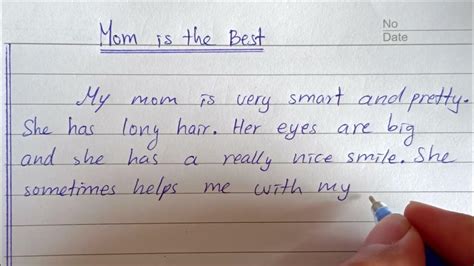 No
Date
Mom is the Best
My mom is very smart and pretty.
She has long hair. Her eyes are big
and she has a really nice smile. She
sometimes helps me with my